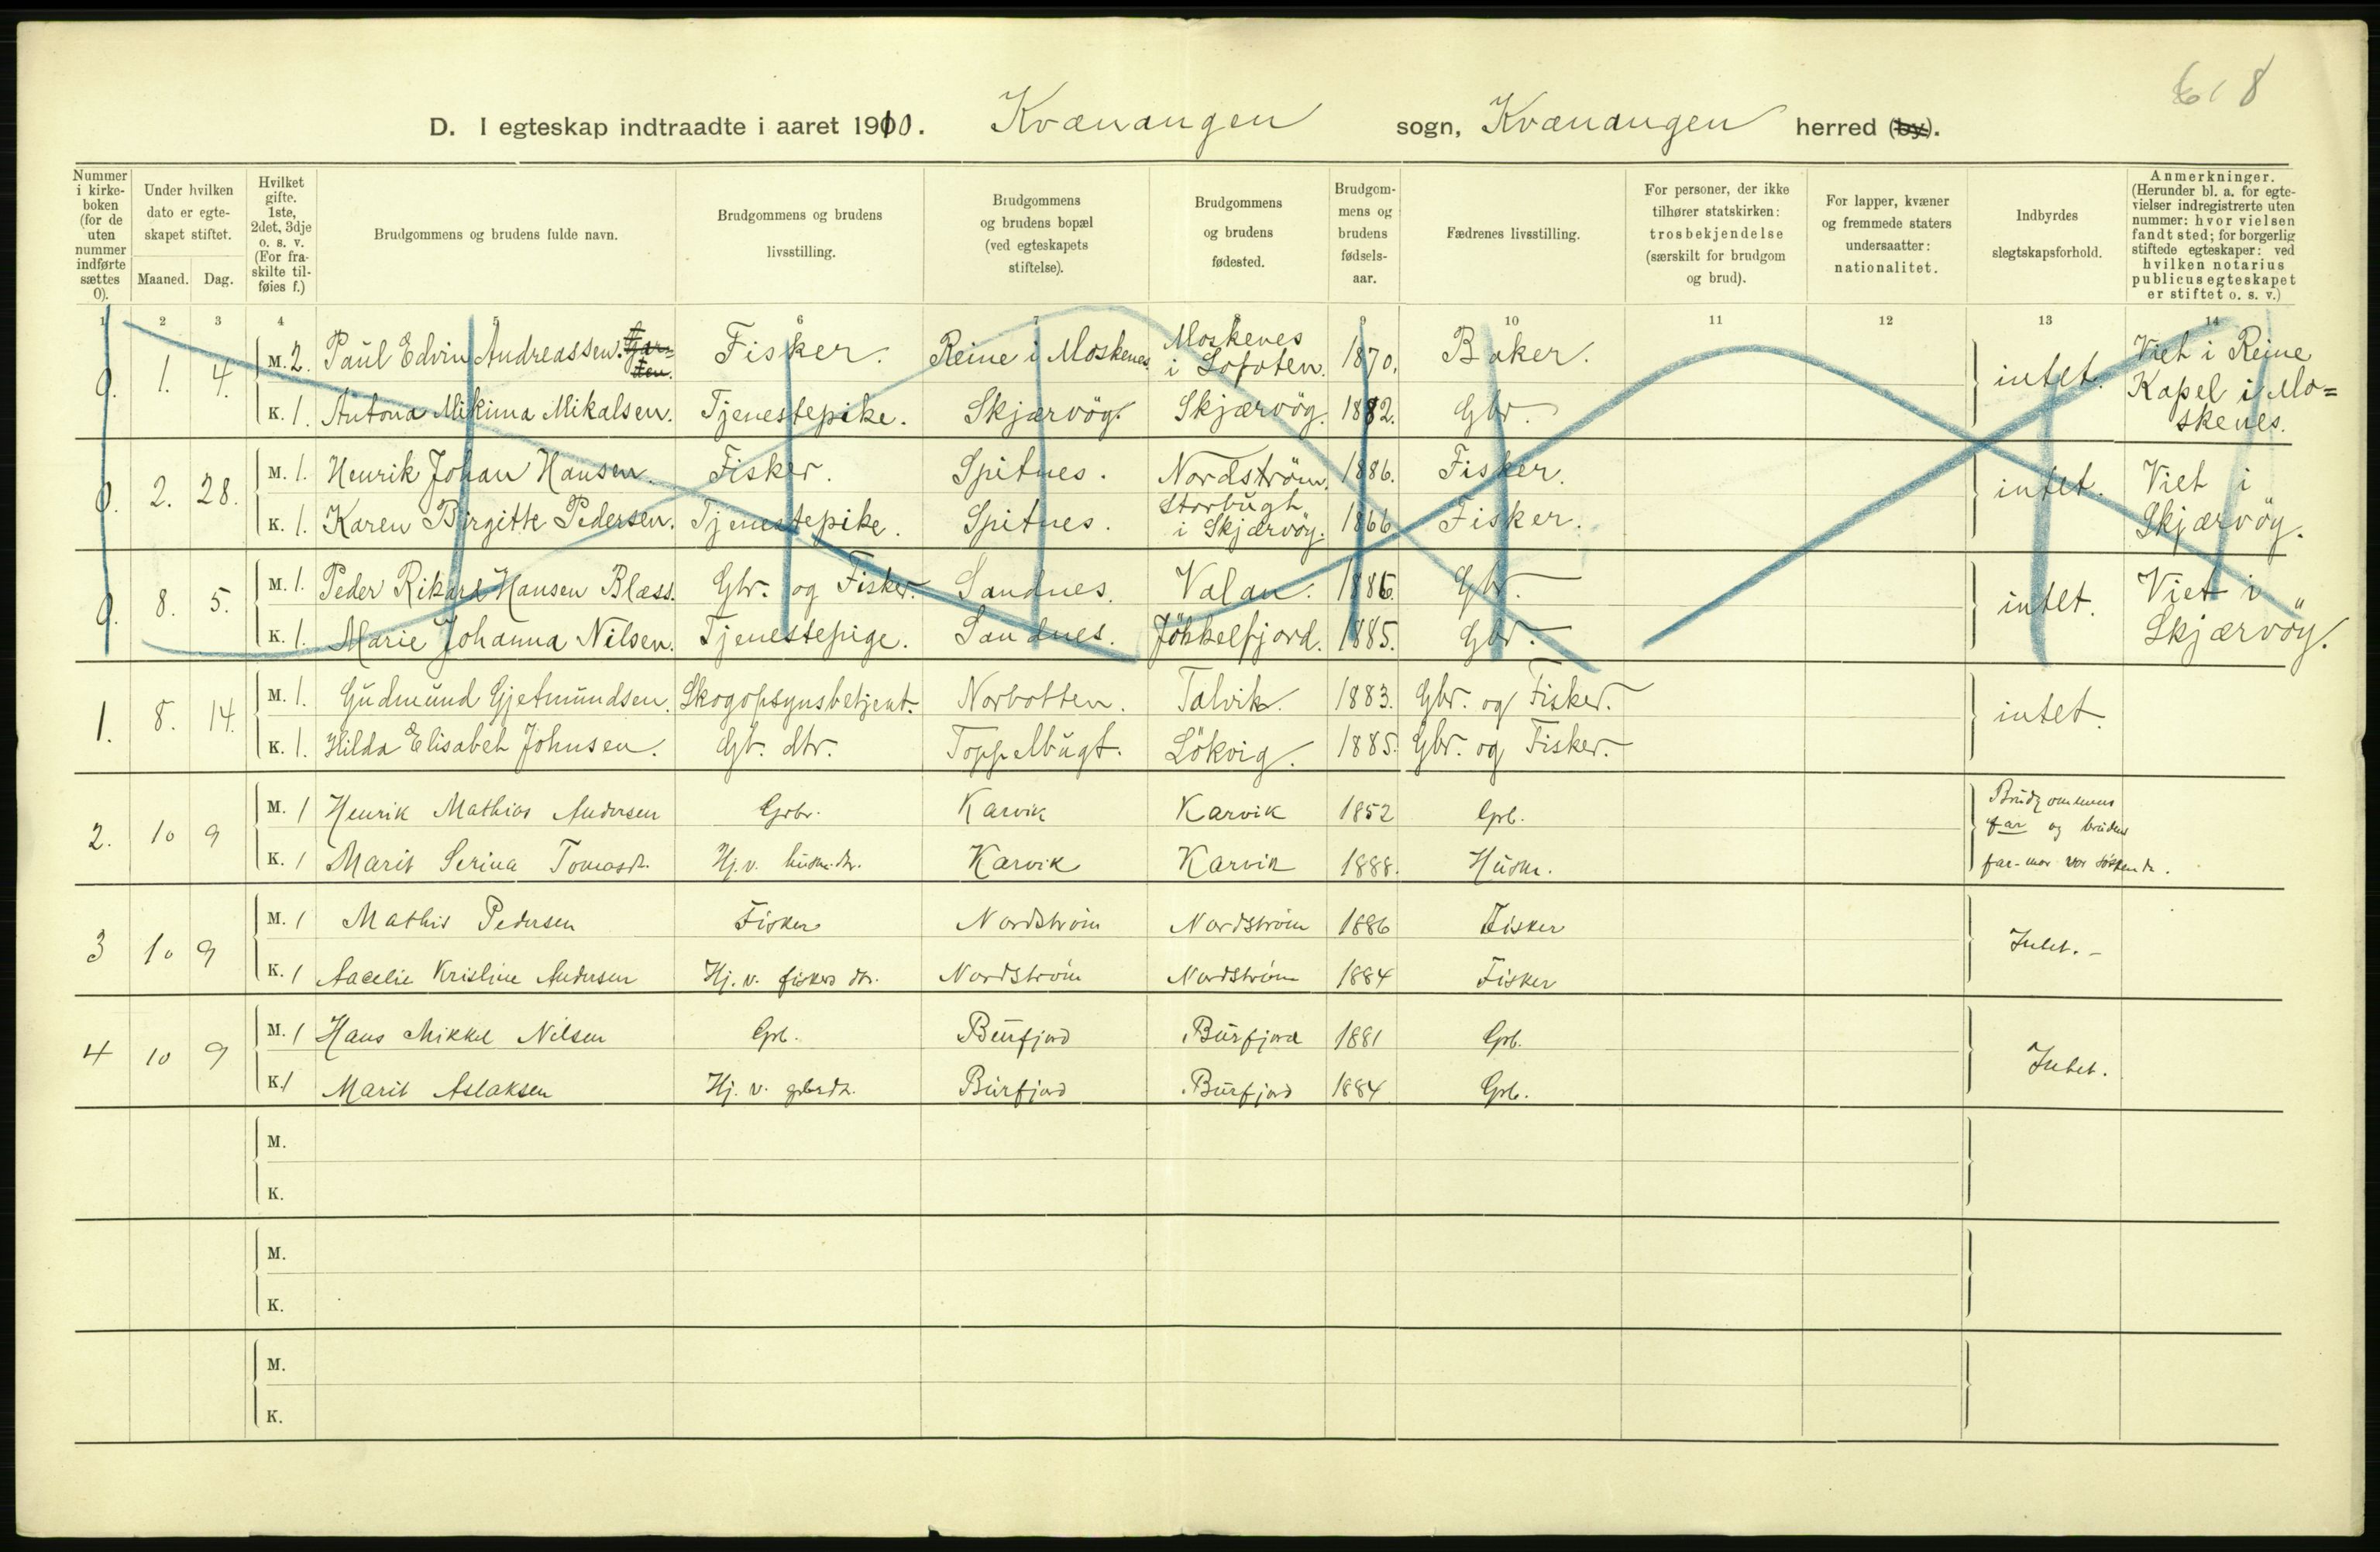 618
D. I egteskap indtraadte i aaret 1910. Kvænangen sogn, Kvænangen herred (by).
Nummer i kirkeboken (for de uten nummer indførte sættes 0).
Under hvilken dato er egteskapet stiftet.
Maaned. Dag.
Hvilket gifte. 1ste, 2det, 3dje o. s. v. (For fraskilte tilføies f.)
Brudgommens og brudens fulde navn.
Brudgommens og brudens livsstilling.
Brudgommens og brudens bopæl (ved egteskapets stiftelse).
Brudgommens og brudens fødested.
Brudgommens og brudens fødselsaar.
Fædrenes livsstilling.
For personer, der ikke tilhører statskirken: trosbekjendelse (særskilt for brudgom og brud).
For lapper, kvæner og fremmede staters undersaatter: nationalitet.
Indbyrdes slegtskapsforhold.
Anmerkninger. (Herunder bl. a. for egtevielser indregistrerte uten nummer: hvor vielsen fandt sted; for borgerlig stiftede egteskaper: ved hvilken notarius publicus egteskapet er stiftet o. s. v.)
1 2 3 4 5 6 7 8 9 10 11 12 13 14
0. 1. 4. M. 2. Paul Edvin Andreassen. Fisker. Reine i Moskenes. Moskenes i Lofoten. 1870. Baker. intet. Viet i Reine Kapel i Moskenes.
K. 1. Antona Mikima Mikalsen. Tjenestepike. Skjærvög. Skjærvög. 1882. Gbr.
0. 2. 28. M. 1. Henrik Johan Hansen. Fisker. Spitnes. Nordström. 1886. Fisker. intet. Viet i Skjærvög.
K. 1. Karen Birgitte Pedersen. Tjenestepike. Spitnes. Storbugt i Skjærvög. 1866 Fisker.
0. 8. 5. M. 1. Peder Rikard Hansen Blæss. Gbr. og Fisker. Sandnes. Valan. 1886. Gbr. intet. Viet i Skjærvög.
K. 1. Marie Johanna Nilsen. Tjenestepige. Sandnes. Jökkelfjord. 1885. Gbr.
1. 8. 14. M. 1. Gudmund Gjetmundsen. Skogopsynsbetjent. Norbotten. Talvik. 1883. Gbr. og Fisker. intet.
K. 1. Hilda Elisabet Johnsen. Gb. dtr. Toppelbugt. Lökvig. 1885. Gbr. og Fisker.
2. 10 9 M. 1 Henrik Mathias Andersen Grbr. Karvik Karvik 1852 Grb. Brudgommens far og brudens far-mor var söskende.
K. 1 Marit Serina Tomasdr. Hj. v. husm. dr. Karvik Karvik 1888. Husm.
3 10 9 M. 1 Mathis Pedersen Fisker Nordström Nordström 1886 Fisker Intet. -
K. 1 Kristine Andersen Hj. v. fiskers dtr. Nordström Nordström 1884 Fisker
4 10 9 M. 1 Hans Mikkel Nilsen Grb. Burfjord Burfjord 1881 Grb. Intet.
K. 1 Marit Aslaksen Hj. v. gbrdr. Burfjord Burfjord 1884 Grb.
M.
K.
M.
K.
M.
K.